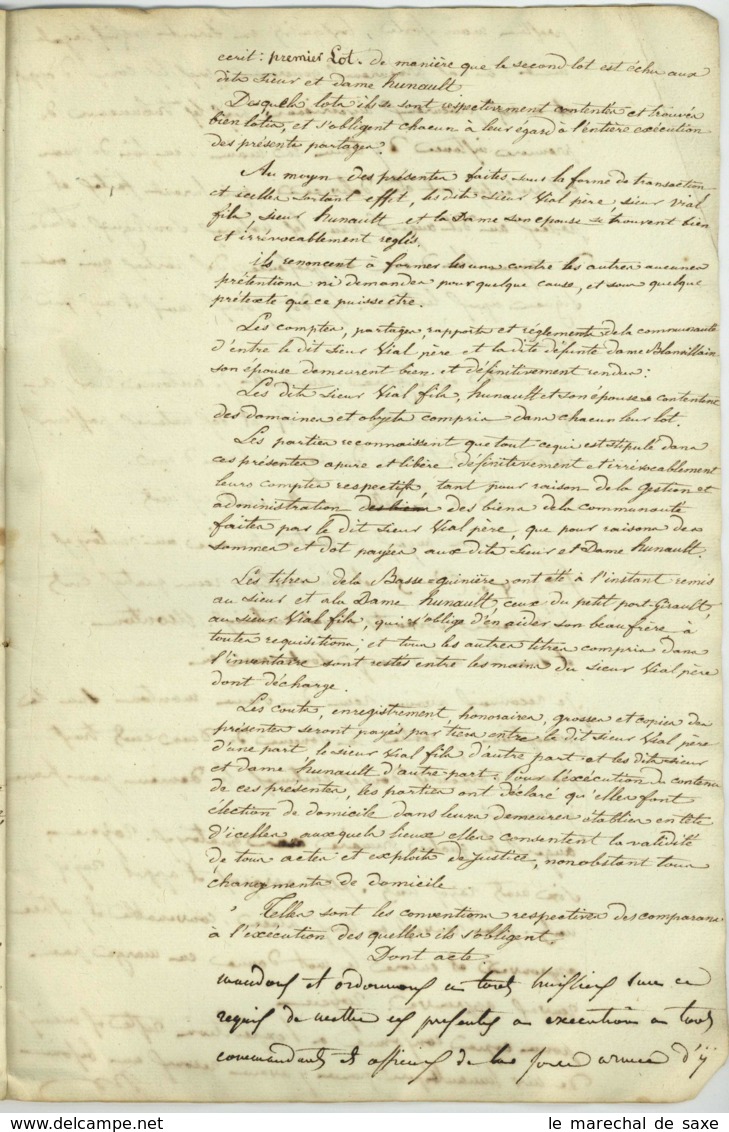 ecrit: premier Lot. de manière que le second lot est échu aux
dits sieur et dame hunault
Desquels lots ils se sont respectivement contentés et trouvés
bien lôtis, et s'obligent chacun à leur égard à l'entière exécution
des présents partages.
Au moyen des présentes faites sous la forme de transaction
et icelles sortant effet, les dits sieur Vial père, sieur Vial
fils, sieur hunault et la Dame son épouse se trouvent bien
et irrévocablement reglés.
ils renoncent à former les uns contre les autres aucunes
prétentions ni demandes pour quelque cause, et sous quelque
prétexte que ce puisse être.
Les comptes, partages, rapports et reglements de la communauté
d'entre le dit sieur Vial père et la dite défunte dame
son épouse demeurent bien et définitivement rendus:
Les dits sieur Vial fils, hunault et son épouse se contentent
des domaines et objets compris dans chacun leur lot.
Les parties reconnaissent que tout ce qui est stipulé dans
ces présentes apure et libère définitivement et irrévocablement
leurs comptes respectifs, tant pour raison de la gestion et
administration des biens des biens de la communauté
faites par le dit sieur Vial père, que pour raisons des
sommes et dot payées aux dits sieur et Dame hunault.
Les titres de la Basse-guinière ont été à l'instant remis
au sieur et a la Dame hunault, ceux du petit port-Girault,
au sieur Vial fils, qui s'oblige d'en aider son beaufrère à
toutes requisitions; et tous les autres titres compris dans
l'inventaire sont restés entre les mains du sieur Vial père
dont décharge.
Les couts, enregistrement, honoraires, grosses et copies des
présentes seront payés par tiers entre le dit sieur Vial père
d'une part, le sieur Vial fils d'autre part et les dits sieur
et dame hunault d'autre part: Pour l'éxécution du contenu
de ces présentes, les parties ont déclaré qu'elles font
élection de domicile dans leurs demeures établies en tête
d'icelles auxquels lieux elles consentent la validité
de tous actes et exploits de justice, nonobstant tous
changements de domicile
Telles sont les conventions respectives des comparans
à l'éxécution des quelles ils s'obligent.
Dont acte.
mandons et ordonnons a tous huissiers sur ce
requis de mettre ces presentes a execution a tous
commandants et officiers de la force armee d'y
le marechal de saxe